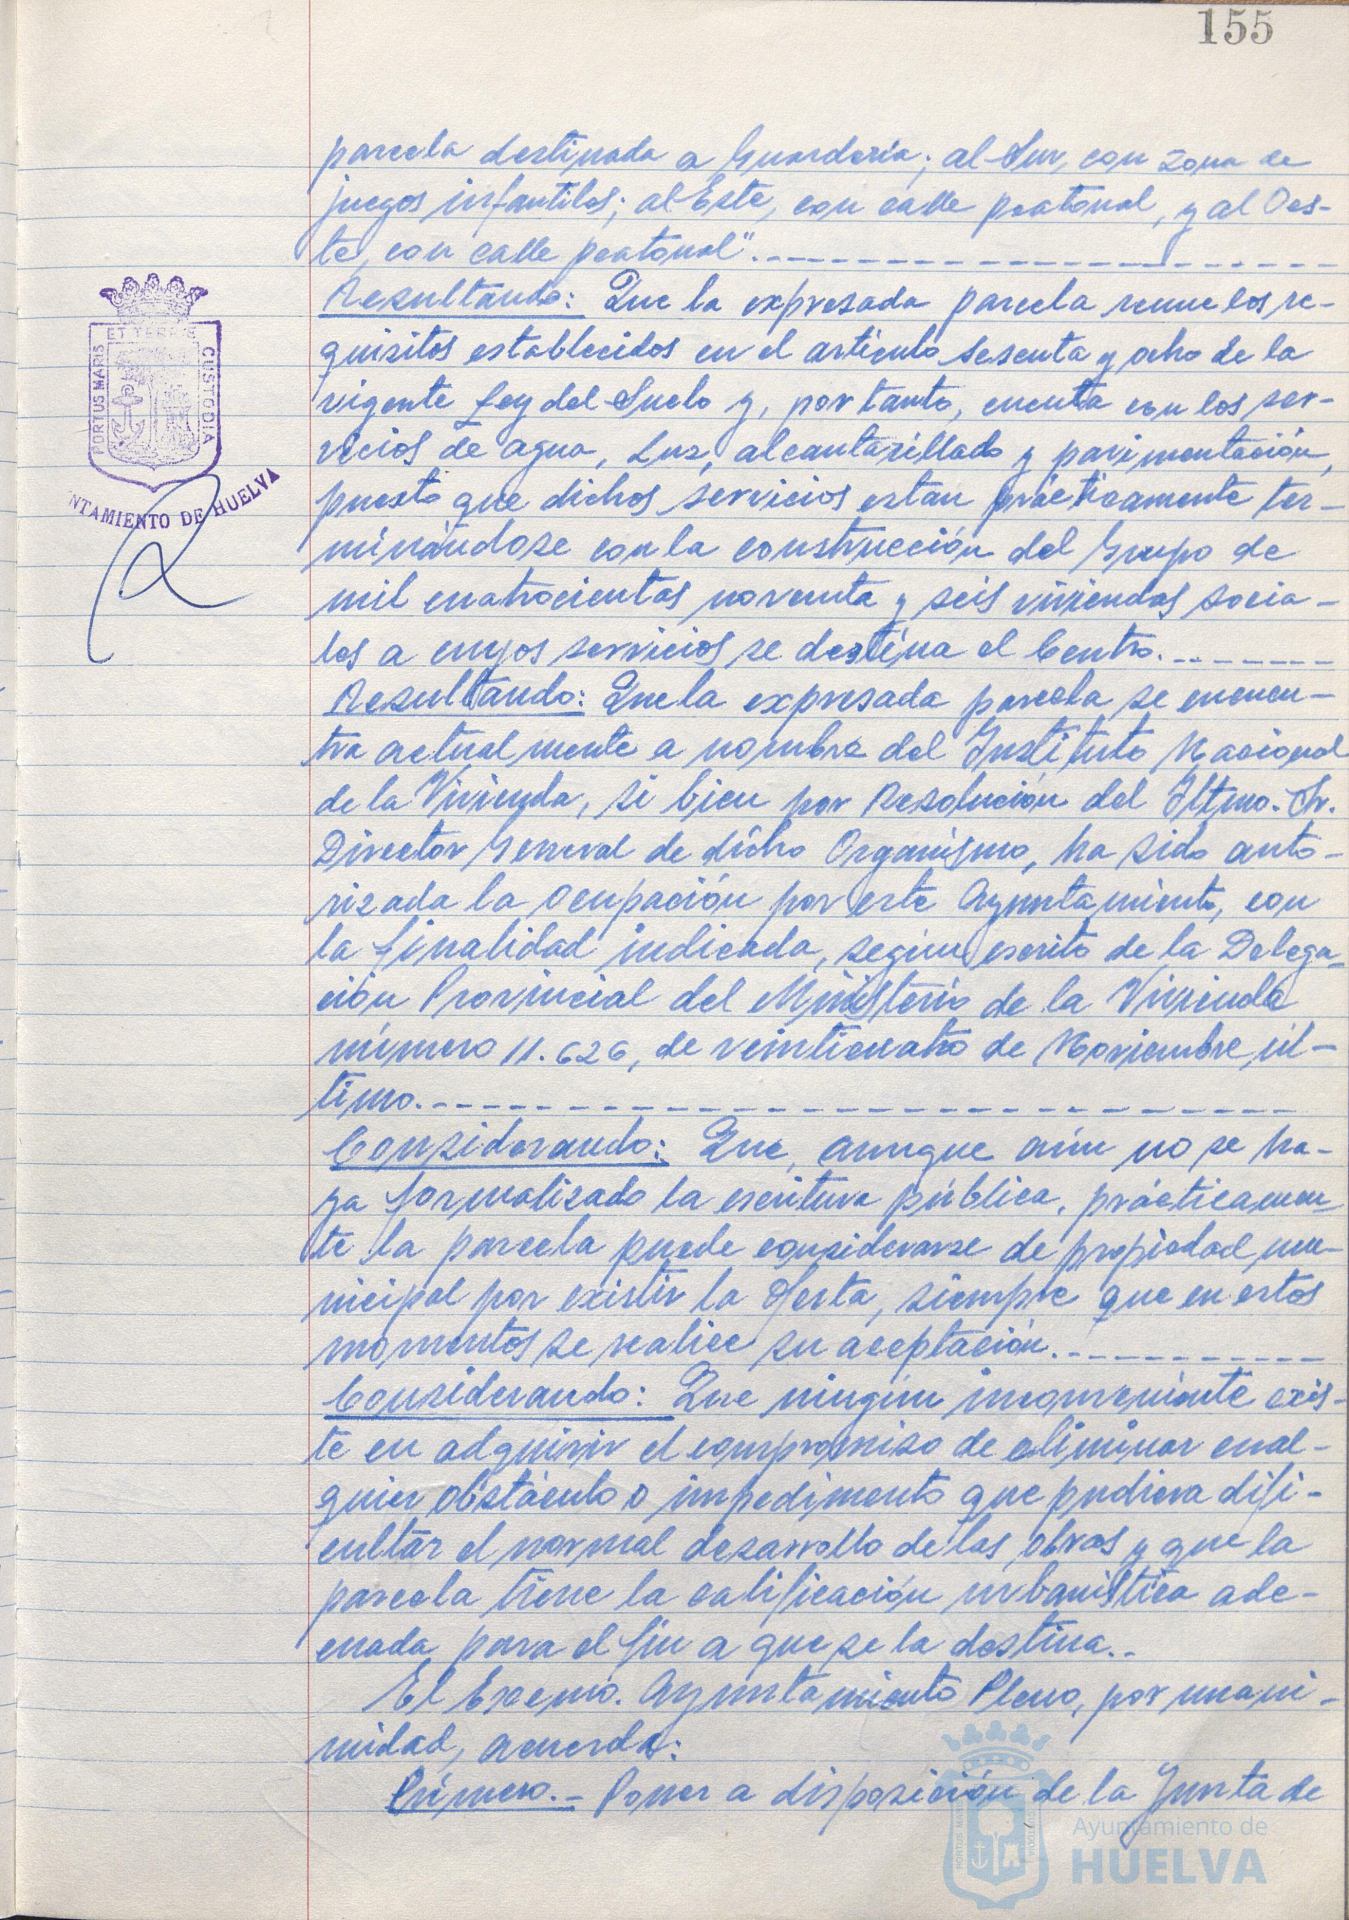 155
parcela destinada a Guardería; al Sur, con zona de
juegos infantiles; al Este, con calle peatonal, y al Oes-
te, con calle peatonal".
Resultando: Que la expresada parcela reune los re-
quisitos establecidos en el artículo sesenta y ocho de la
vigente Ley del Suelo y, por tanto, cuenta con los ser-
vicios de agua, Luz, alcantarillado y pavimentación,
puesto que dichos servicios estan prácticamente ter-
minándose con la construcción del Grupo de
mil cuatrocientas noventa y seis viviendas socia-
les a cuyos servicios se destina el Centro.
Resultando: Que la expresada parcela se encuen-
tra actualmente a nombre del Instituto Nacional
de la Vivienda, si bien por Resolución del Iltmo. Sr.
Director General de dicho Organismo, ha sido auto-
rizada la ocupación por este Ayuntamiento, con
la finalidad indicada, según escrito de la Delega-
ción Provincial del Ministerio de la Vivienda
número 11.626, de veinticuatro de Noviembre úl-
timo.
Considerando: Que, aunque aún no se ha-
ya formalizado la escritura pública, prácticamen-
te la parcela puede considerarse de propiedad mu-
nicipal por existir la oferta, siempre que en estos
momentos se realice su aceptación.
Considerando: Que ningún inconveniente exis-
te en adquirir el compromiso de eliminar cual-
quier obstáculo o impedimento que pudiera difi-
cultar el normal desarrollo de las obras y que la
parcela tiene la calificación urbanística ade-
cuada para el fin a que se la destina..
El Excmo. Ayuntamiento Pleno, por unani-
midad, acuerda:
Primero.- Poner a disposición de la Junta de
PORTUS MARIS ET TERRAE CUSTODIA
NTAMIENTO DE HUELVA
Ayuntamiento de
HUELVA